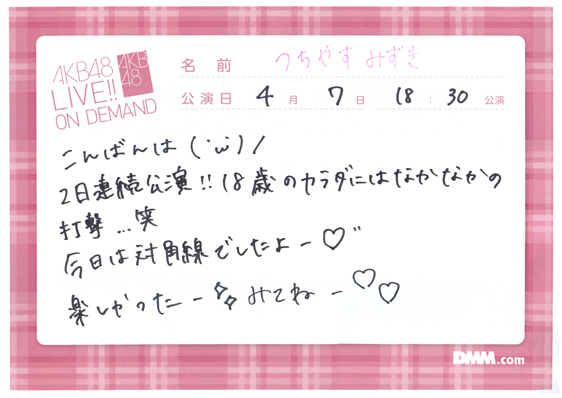 AKB48
LIVE!!
ON DEMAND
AKB
48
名前 つちやす みずき
公演日 4月 7日 18:30 公演
こんばんは(˙ω˙)ノ
2日連続公演!!18歳のカラダにはなかなかの
打撃...笑
今日は対角線でしたよー♡〃
楽しかったーみてねー♡♡
DMM.com